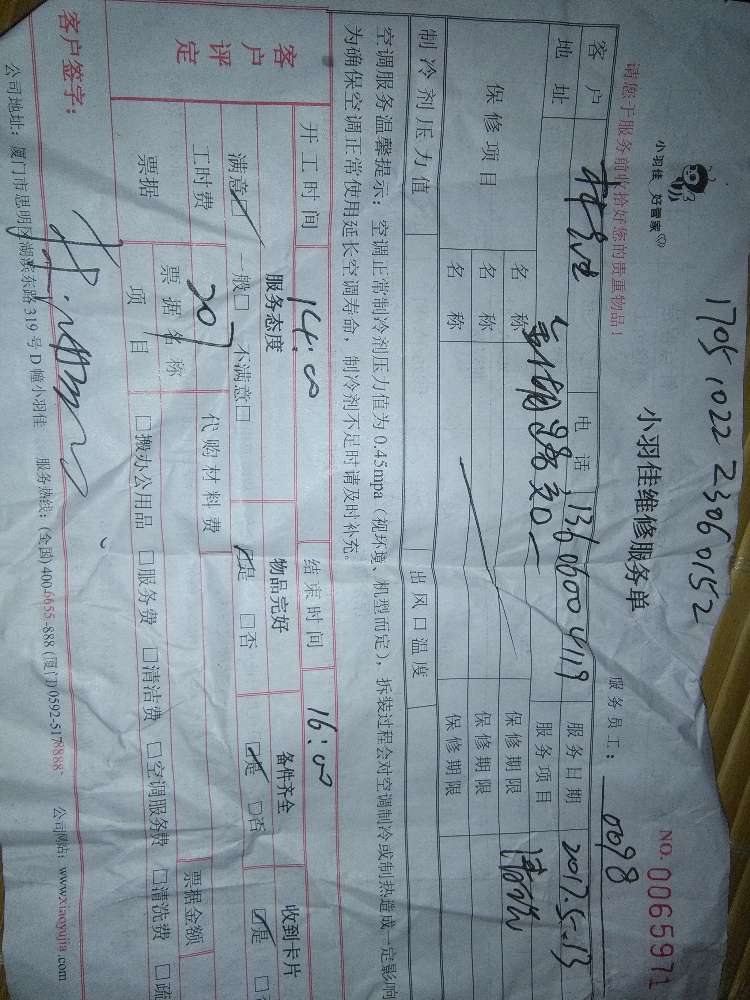 1705102223060152
小羽佳 好管家
小羽佳维修服务单
NO. 0065971
请您于服务前收拾好您的贵重物品!
服务员工: 0098
客户 电话 13606004119 服务日期 2017.5.13
地址 路 服务项目 清洗
保修项目 名称 保修期限
名称 保修期限
名称 保修期限
制冷剂压力值 出风口温度
空调服务温馨提示: 空调正常制冷剂压力值为0.45mpa (视环境、机型而定), 拆装过程会对空调制冷或制热造成一定影响
为确保空调正常使用延长空调寿命, 制冷剂不足时请及时补充。
开工时间 14:00 结束时间 16:00
客户评定 服务态度 物品完好 备件齐全 收到卡片
满意☑ 一般□ 不满意□ ☑是 □否 ☑是 □否 ☑是
工时费 207 代购材料费
票据 票据名称 票据金额
项目 □搬办公用品 □服务费 □清洁费 □空调服务费 □清洗费 □疏
客户签字:
公司地址: 厦门市思明区湖滨东路319号D幢小羽佳 服务热线: (全国) 400-6655-888 (厦门) 0592-5178888 公司网站: www.xiaoyujia.com